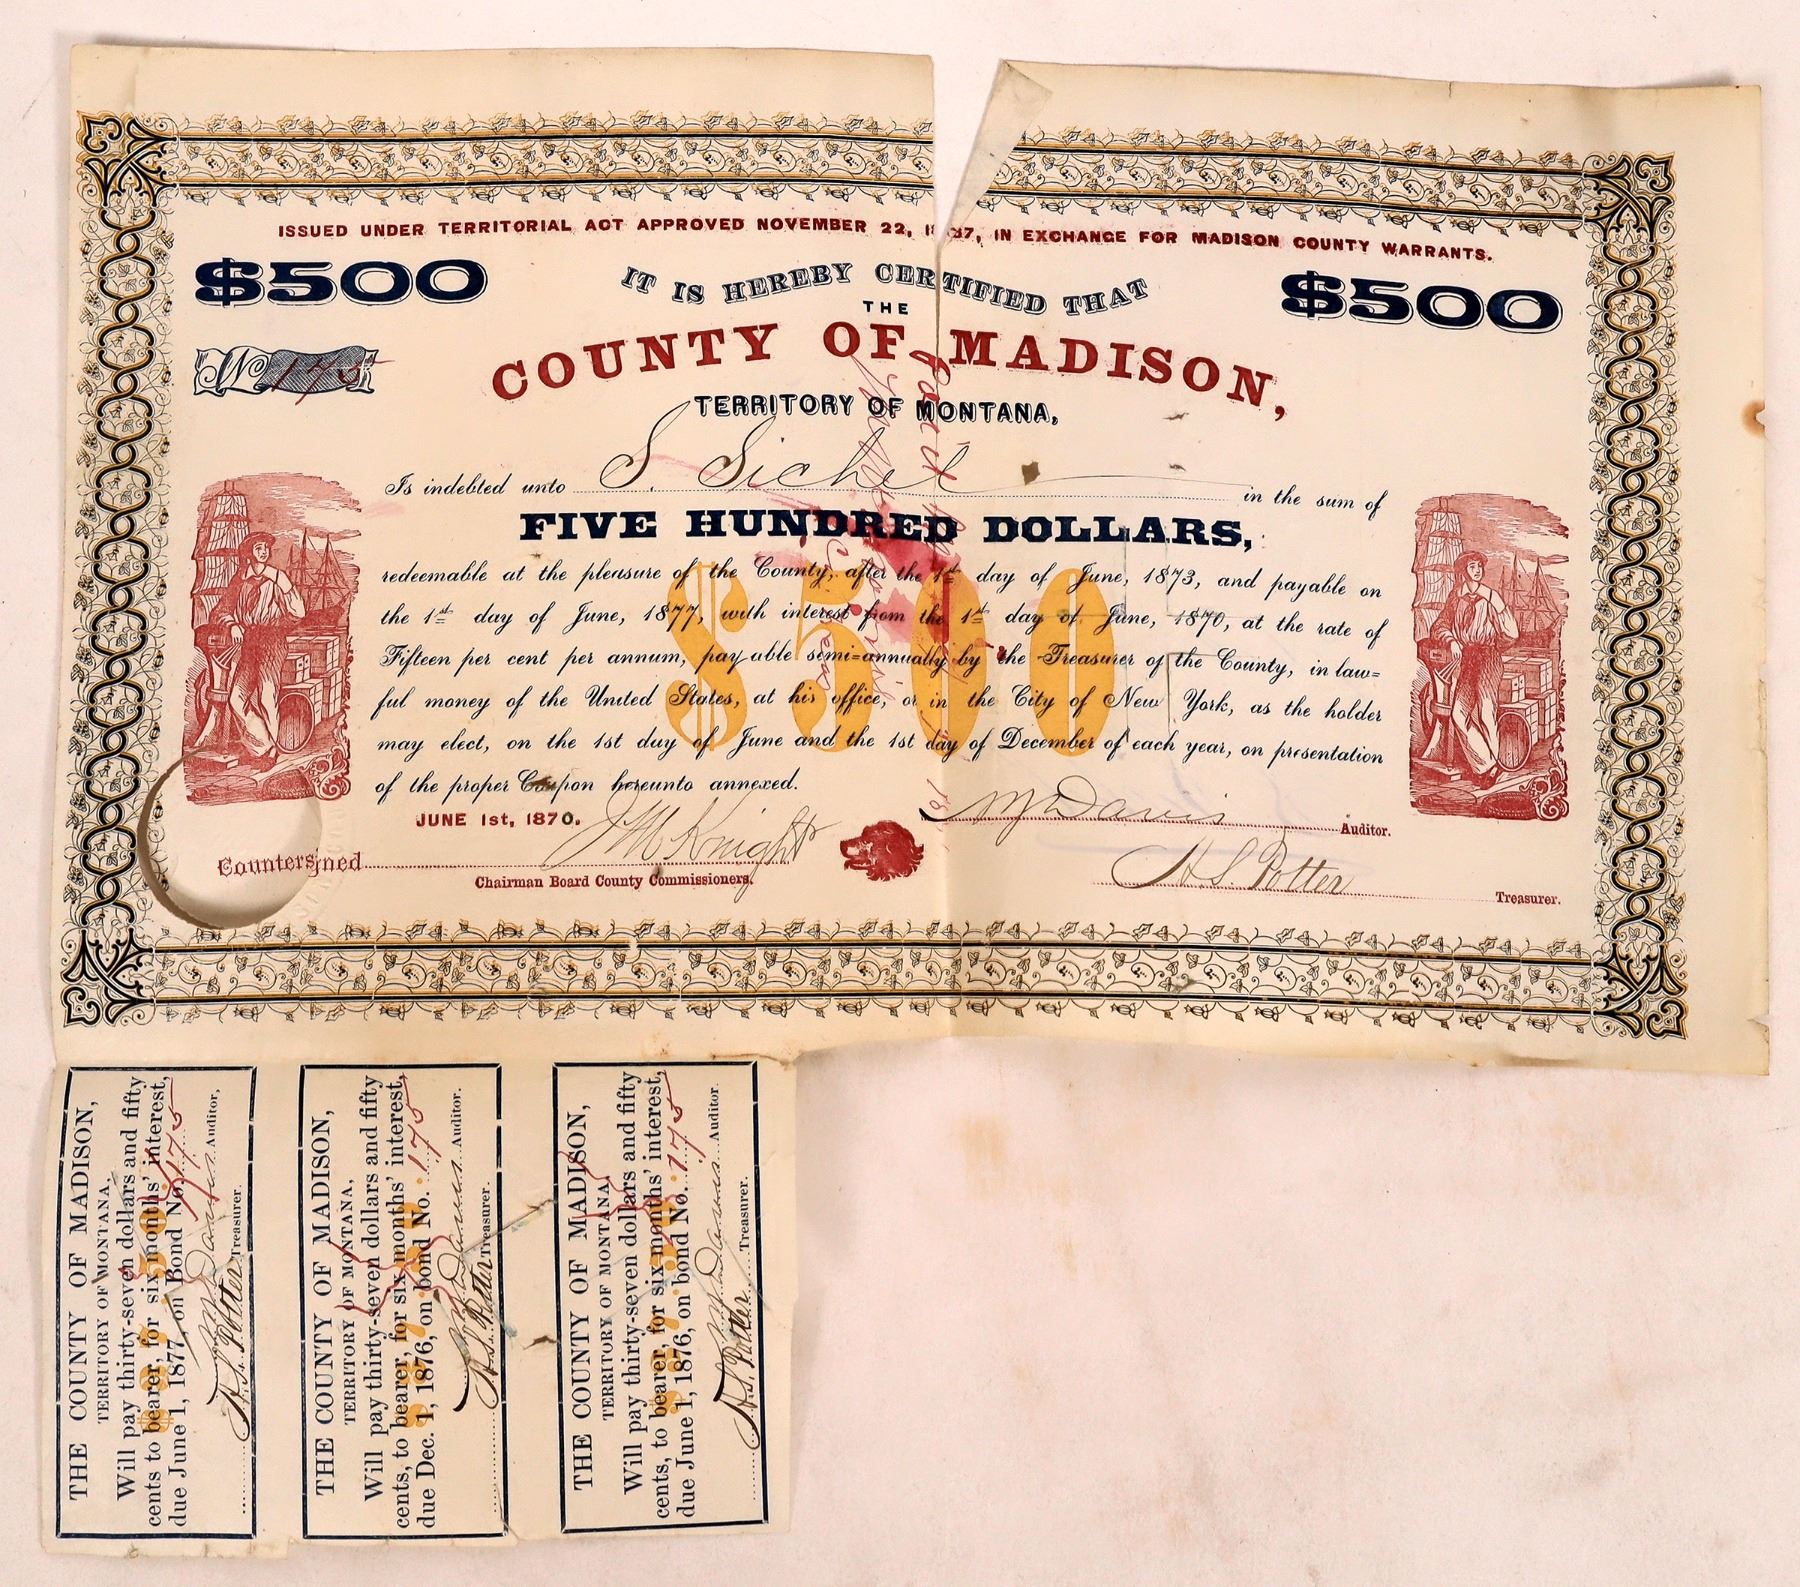 ISSUED UNDER TERRITORIAL ACT APPROVED NOVEMBER 22, 1867, IN EXCHANGE FOR MADISON COUNTY WARRANTS.
$500 $500
IT IS HEREBY CERTIFIED THAT
THE
COUNTY OF MADISON,
No 175
TERRITORY OF MONTANA,
Is indebted unto S. Sichel in the sum of
FIVE HUNDRED DOLLARS,
redeemable at the pleasure of the County, after the 1st day of June, 1873, and payable on
the 1st day of June, 1877, with interest from the 1st day of June, 1870, at the rate of
Fifteen per cent per annum, payable semi=annually by the Treasurer of the County, in law=
ful money of the United States, at his office, or in the City of New York, as the holder
may elect, on the 1st day of June and the 1st day of December of each year, on presentation
of the proper Coupon hereunto annexed.
$500
JUNE 1st, 1870.
Wm Davis Auditor.
Countersigned J M Knight
Chairman Board County Commissioners.
H S. Potter Treasurer.
THE COUNTY OF MADISON,
TERRITORY OF MONTANA,
Will pay thirty-seven dollars and fifty
cents to bearer, for six months' interest,
due June 1, 1877, on Bond No. 175
Wm Davis Auditor,
H. S. Potter Treasurer.
THE COUNTY OF MADISON,
TERRITORY OF MONTANA,
Will pay thirty-seven dollars and fifty
cents, to bearer, for six months' interest,
due Dec. 1, 1876, on bond No. 175
Wm Davis Auditor.
H. S. Potter Treasurer.
THE COUNTY OF MADISON,
TERRITORY OF MONTANA,
Will pay thirty-seven dollars and fifty
cents, to bearer, for six months' interest,
due June 1, 1876, on bond No. 175
Wm Davis Auditor.
H. S. Potter Treasurer.